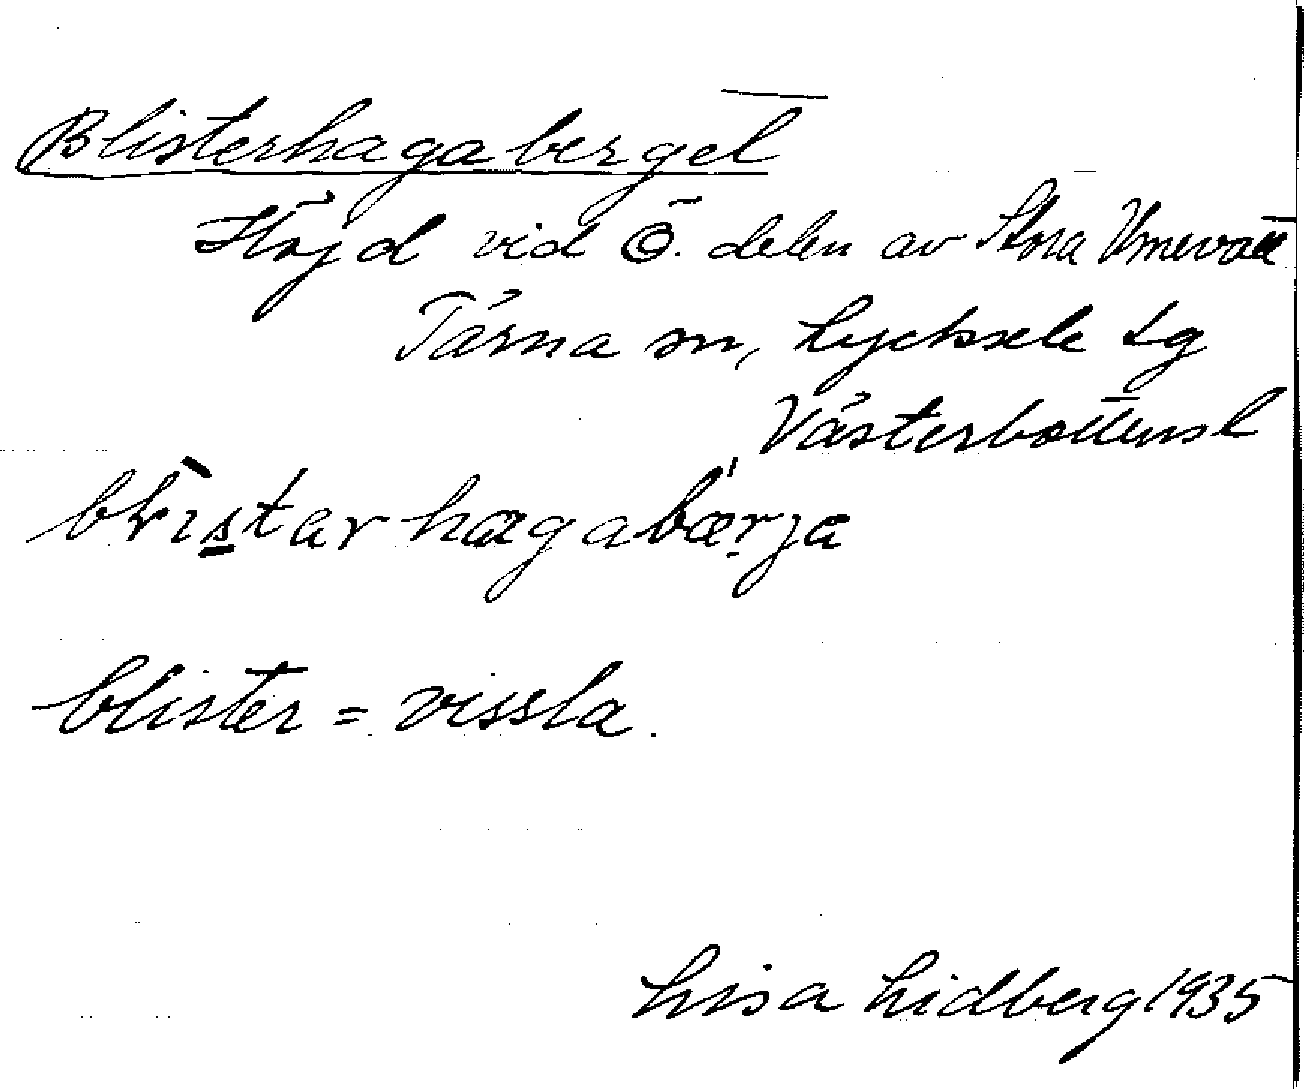 Blisterhagaberget
Höjd vid Ö. delen av Stora Umevatt
Tärna sn, Lycksele Lg
Västerbottensl
blistarhagabærja
blister = vissla.
Lisa Lidberg 1935